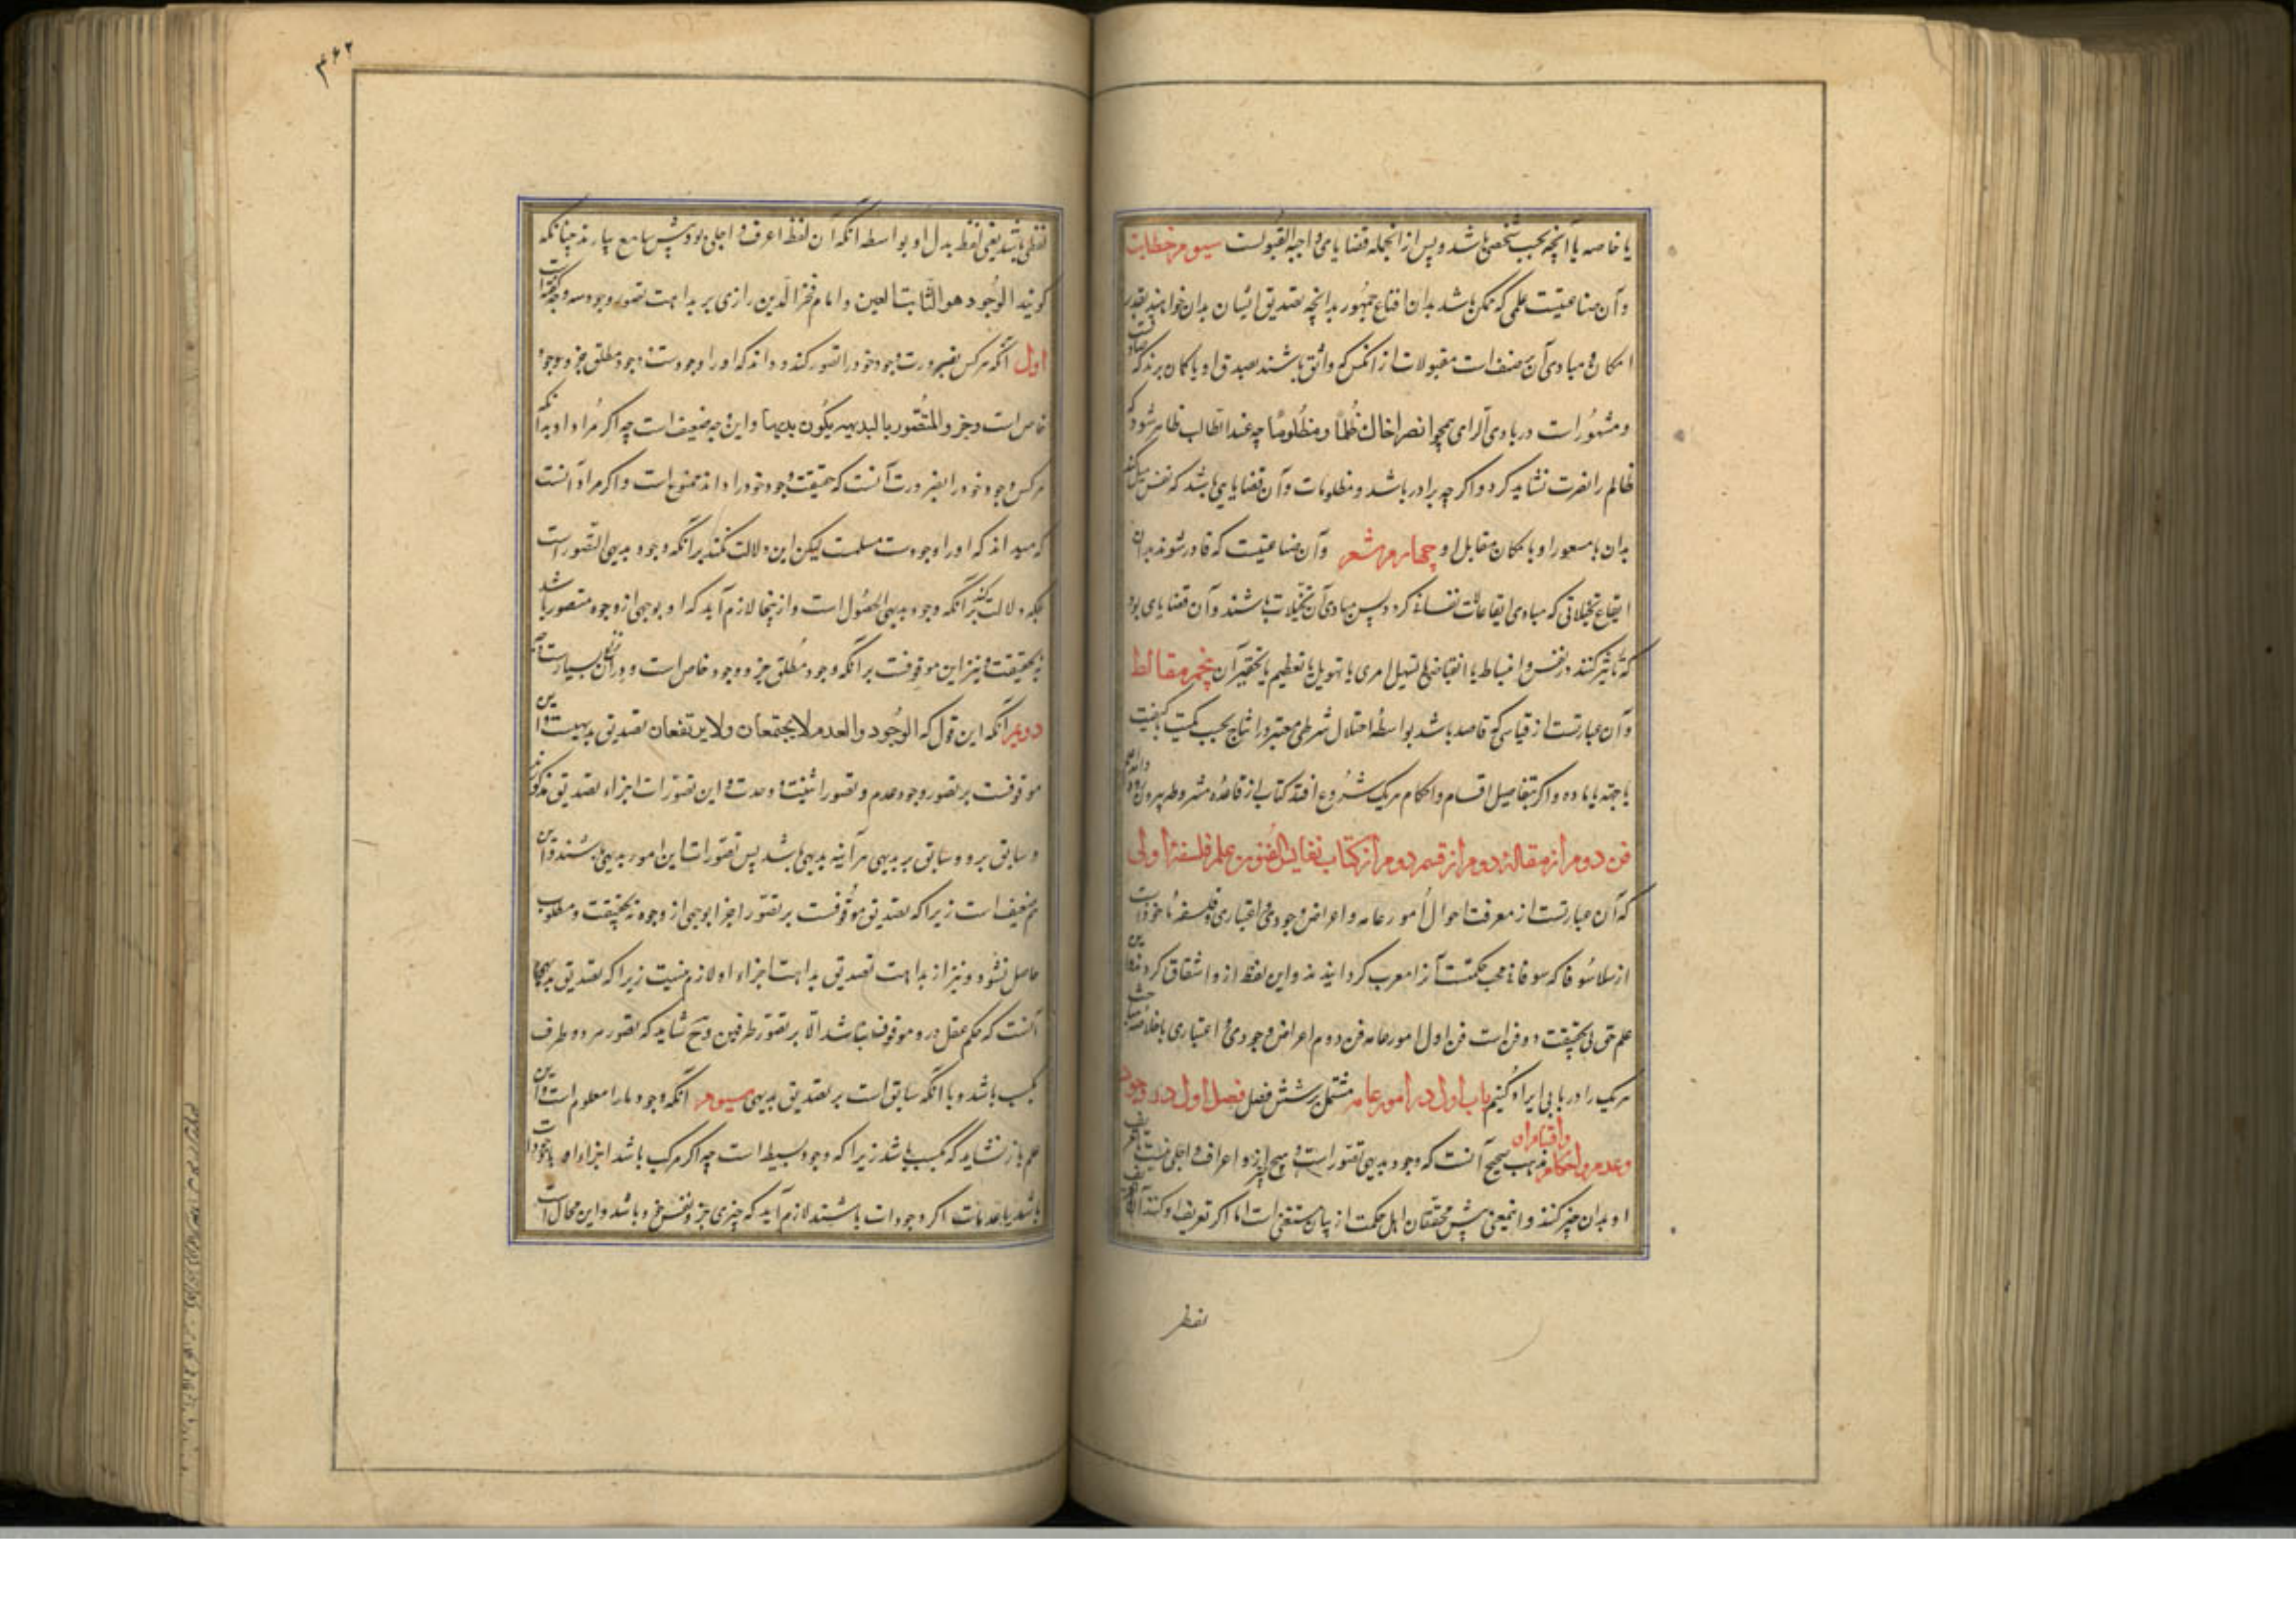 یا خاصه یا آنچه بحسب شخصی باشد و پس از آنجمله قضایای واجبة القبولست سیوم خطابت
و آن صناعتیست علمی که ممکن باشد بدان اقناع جمهور بدانچه تصدیق ایشان بدان خواهند بقدر
امکان و مبادی آن سه صنف است مقبولات از آنکس که واثق باشند بصدق او یا کمان برند که صادقست
و مشهورات در بادی الرای همچو انصر اخاک ظالماً و مظلوماً چه عند الطالب ظاهر شود که
ظالم را نصرت نشاید کرد و اکر چه برادر باشد و مظنونات و آن قضایایی باشد که نفس میل کند
بدان با شعور او با مکان مقابل او چهارم شعر و آن صناعتیست که قادر شوند بدان
ایقاع تخیلاتی که مبادی انفعالات نفسانی کردد پس مبادی آن مخیلات باشند و آن قضایای بود
که تأثیر کنند در نفس و انبساط یا انقباض یا تسهیل امری یا تهویل یا تعظیم یا تحقیر آن پنجم مغالطه
و آن عبارتست از قیاسی که فاسد باشد بواسطۀ اختلال شرطی معتبر در انتاج بحسب کمیت یا کیفیت
یا جهة یا ماده و اکر بتفاصیل اقسام و احکام هر یک شروع افتد کتاب از قاعدۀ مشروطه بیرون رود والله اعلم
فن دوم از مقالۀ دوم از قسم دوم از کتاب نفایس الفنون در علم فلسفۀ اولی
که آن عبارتست از معرفت احوال امور عامه و اعراض وجودی و اعتباری و فلسفه ماخوذ است
از فیلاسوفا که سوفا محب حکمتست آنرا معرب کردانیدند و این لفظ از و اشتقاق کرد
علم حق بی حقیقت دو فن است فن اول امور عامه فن دوم اعراض وجودی و اعتباری با خلاصه مباحث
هر یک را در بابی ایراد کنیم باب اول در امور عامه مشتمل بر شش فصل فصل اول در وجود
و عدم و احکام و اقسام آن مذهب صحیح آنست که وجود بدیهی تصور است و هیچ چیز از و اعرف و اجلی نیست تا تعریف
او بدان چیز کنند و اینمعنی پیش محققان اهل حکمت از بیان مستغنی است اما اکر تعریف او کنند آن تعریف
لفظی
۴۶۲
لفظی باشد یعنی لفظ بدل او بواسطه آنکه آن لفظ اعرف و اجلی بود پیش سامع بیارند چنانکه
کویند الوجود هو الثابت العین و امام فخر الدین رازی بر بداهت تصور وجود سه وجه کفته است
اول آنکه هر کس بضرورت وجود خود را تصور کند و داند که او را وجودست و وجود مطلق جزو وجود
خاص است و جزو المتصور بالبدیهیه یکون بدیهیا و این وجه ضعیف است چه اکر مراد او بدآنکه
هر کس وجود خود را بضرورت آنست که حقیقت وجود خود را داند ممنوع است و اکر مراد آنست
که میداند که او را وجودست مسلمست لیکن این دلالت نکند بر آنکه وجود بدیهی التصور است
بلکه دلالت کند بر آنکه وجود بدیهی الحصول است و از ینجا لازم آید که او بوجهی از وجوه متصور باشد
نه بحقیقت و نیز این موقوفست بر آنکه وجود مطلق جزو وجود خاص است و در آن بسیار سخن است
دویم آنکه این قول که الوجود و العدم لا یجتمعان و لا یرتفعان تصدیق بدیهیست و این
موقوفست بر تصور وجود و عدم و تصور اثنینیت و وحدت و این تصورات اجزاء تصدیق مذکورند
و سابق برو و سابق بر بدیهی هر آینه بدیهی باشد پس تصورات این امور بدیهی باشند و این
هم ضعیف است زیرا که تصدیق موقوفست بر تصور اجزا بوجهی از وجوه نه بحقیقت و مطلوب
حاصل نشود و نیز از بداهت تصدیق بداهت اجزاء او لازم نیست زیرا که تصدیق بدیهی
آنست که حکم عقل درو موقوف نباشد الا بر تصور طرفین و ح شاید که تصور هر دو طرف
بکسب باشد و با آنکه سابق است بر تصدیق بدیهی سیوم آنکه وجود ما را معلوم است و این
علم باز نشاید که بکسب باشد زیرا که وجود بسیط است چه اکر مرکب باشد اجزاء او یا وجودات
باشد یا عدمات اکر وجودات باشند لازم آید که چیزی جزو نفس خود باشد و این محال است